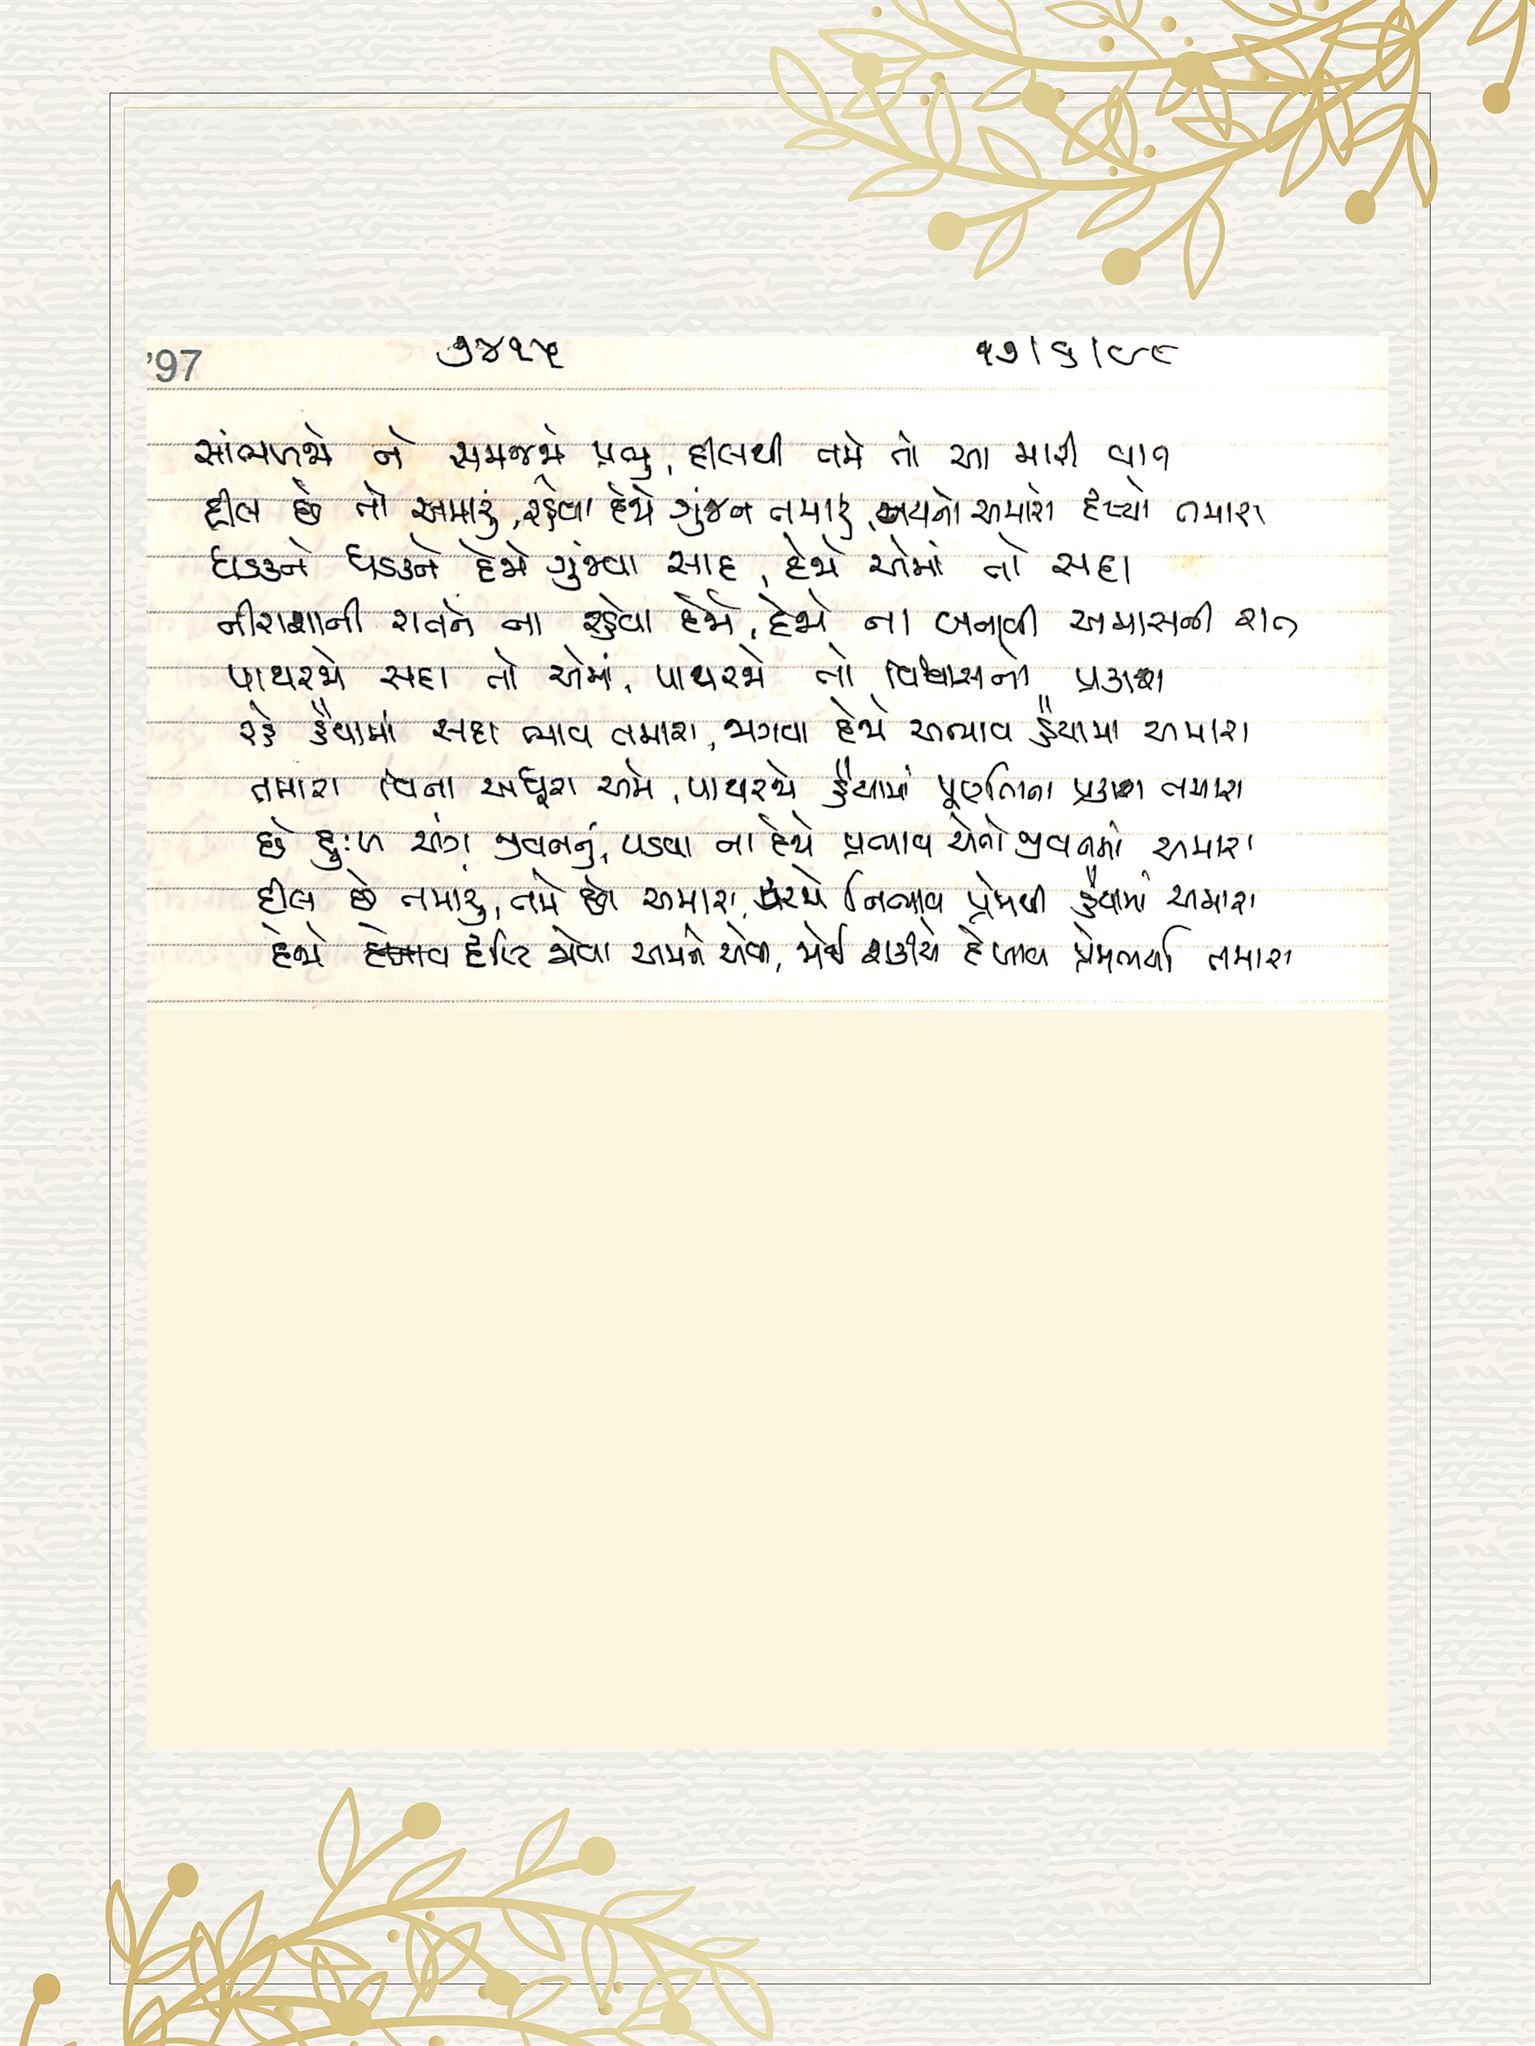 '97 ૭૪૧૫ ૧૭/૬/૯૮
સાંભળજો ને સમજજો પ્રભુ, દીલથી તમે તો આ મારી વાત
દીલ છે તો અમારું, રહેવા દેજો ગુંજન તમારું, નયનો અમારો તમારા
ધડકને ધડકને દેજો ગુંજવા સાદ, દેજો એમાં તો સદા
નીરાશાની રાતને ના રહેવા દેજો, દેજો ના બનાવી અમાસની રાત
પાથરજો સદા તો એમાં, પાથરજો તો વિશ્વાસનો પ્રકાશ
રહે હૈયામાં સદા ભાવ તમારા, જાગવા દેજો અભાવ હૈયામાં અમારા
તમારા વિના અધૂરા અમે, પાથરજો હૈયામાં પૂર્ણતાના પ્રકાશ તમારા
છે દુઃખ અંગ જીવનનું, પડવા ના દેજો પ્રભાવ એનો જીવનમાં અમારા
દીલ છે તમારું, તમે છો અમારા, ભરજો નિત્યભાવ પ્રેમથી હૈયામાં અમારા
દેજો દૃષ્ટિ જોવા અમને એવી, જોઈ શકીએ દેખાવ પ્રેમભર્યા તમારા